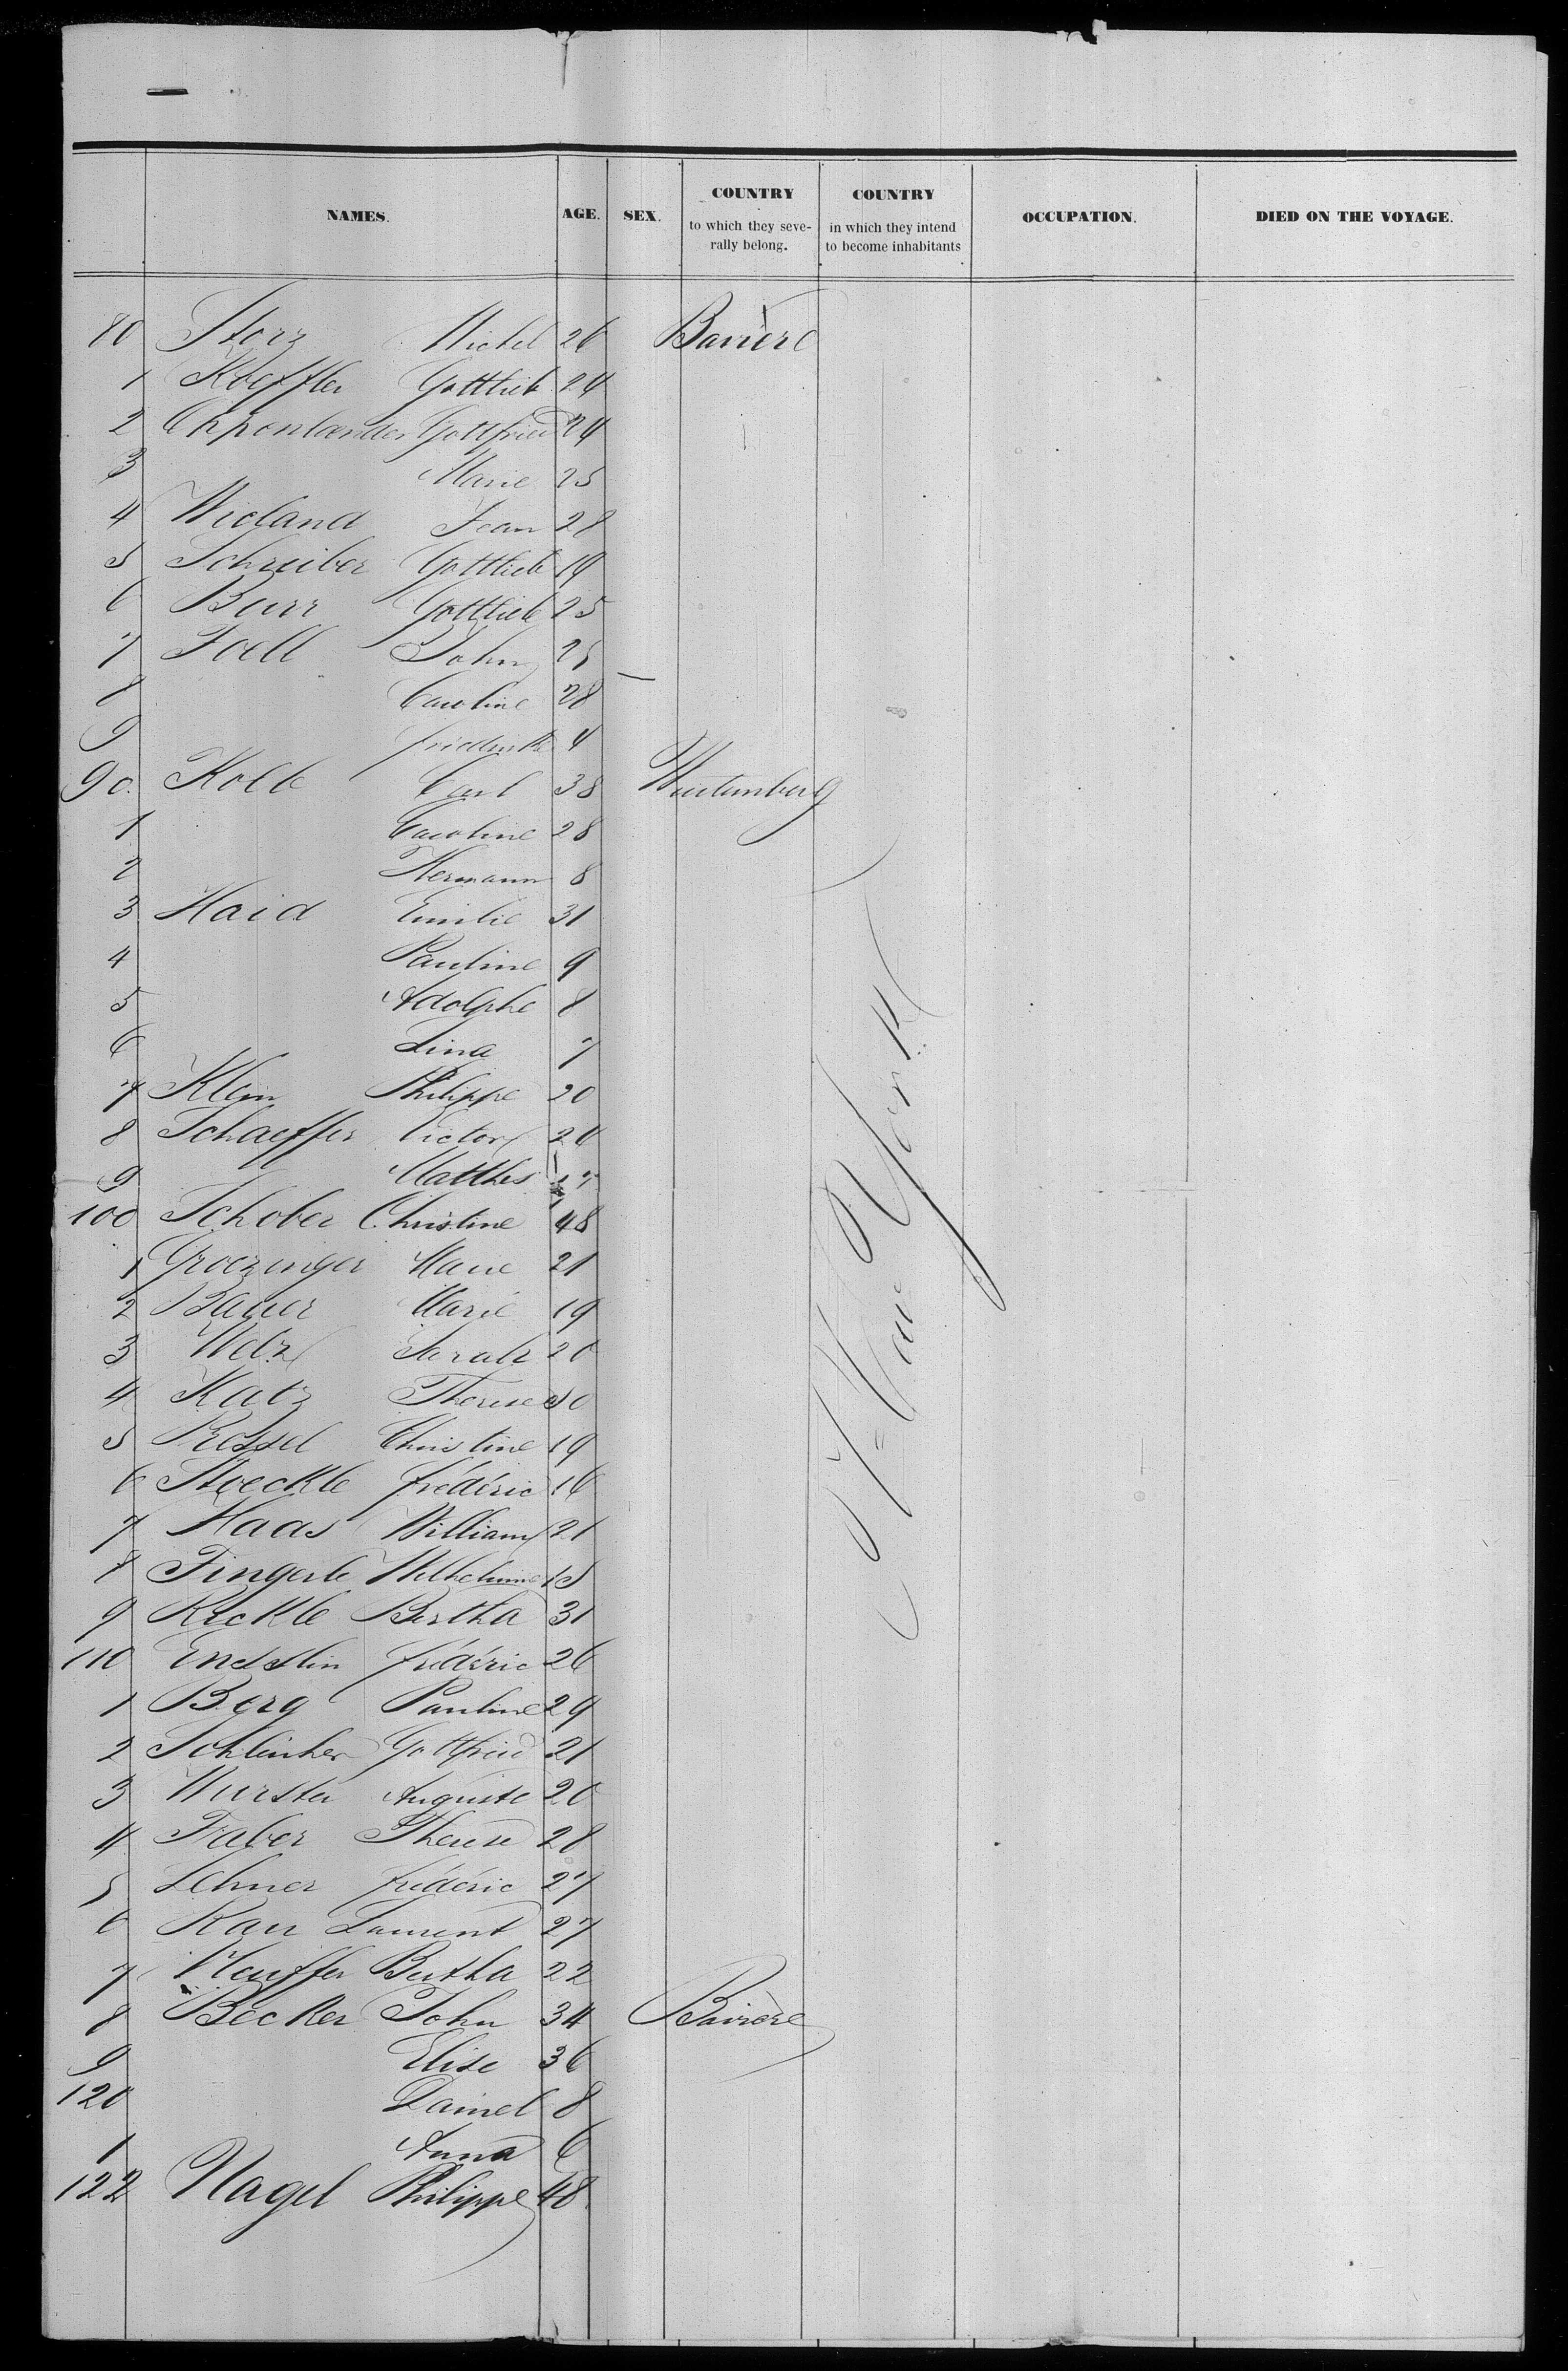 NAMES. AGE. SEX. COUNTRY to which they seve- rally belong. COUNTRY in which they intend to become inhabitants OCCUPATION. DIED ON THE VOYAGE.
80 Storz Michel 26 Bavière
1 Koeffler Gottlieb 24
2 Oppenlander Gottfried 24
3 Marie 25
4 Wieland Jean 28
5 Schreiber Gottlieb 19
6 Burr Gottlieb 25
7 Foell John 25
8 Caroline 28
9 4
90. Kolb Carl 38 Wurtemberg
1 Caroline 28
2 Hermann 8
3 Haid Emilie 31
4 Pauline 9
5 Adolphe 8
6 Lina 7
7 Klein Philippe 20
8 Schaeffer Victor 26
9 Matthis
100 Schober Christine 48
1 Groezinger Marie 21
2 Bauer Marie 19
3 Sarah 20
4 Katz Therese 50
5 Rossel Christine 19
6 Stoeckle frédéric 16
7 Haas William 21
8 Fingerle Wilhelmine 15
9 Keckle Bertha 31
110 Ensslin frédéric 26
1 Berg Pauline 29
2 Gottfried 21
3 Wurster Auguste 20
4 Faber Therese 28
5 Lehner frédéric 27
6 Laurent 27
7 Bertha 22
8 Becker John 34 Bavière
9 Elise 36
120 Dainel 8
1 Anna 6
122 Nagel Philippe 48
New York